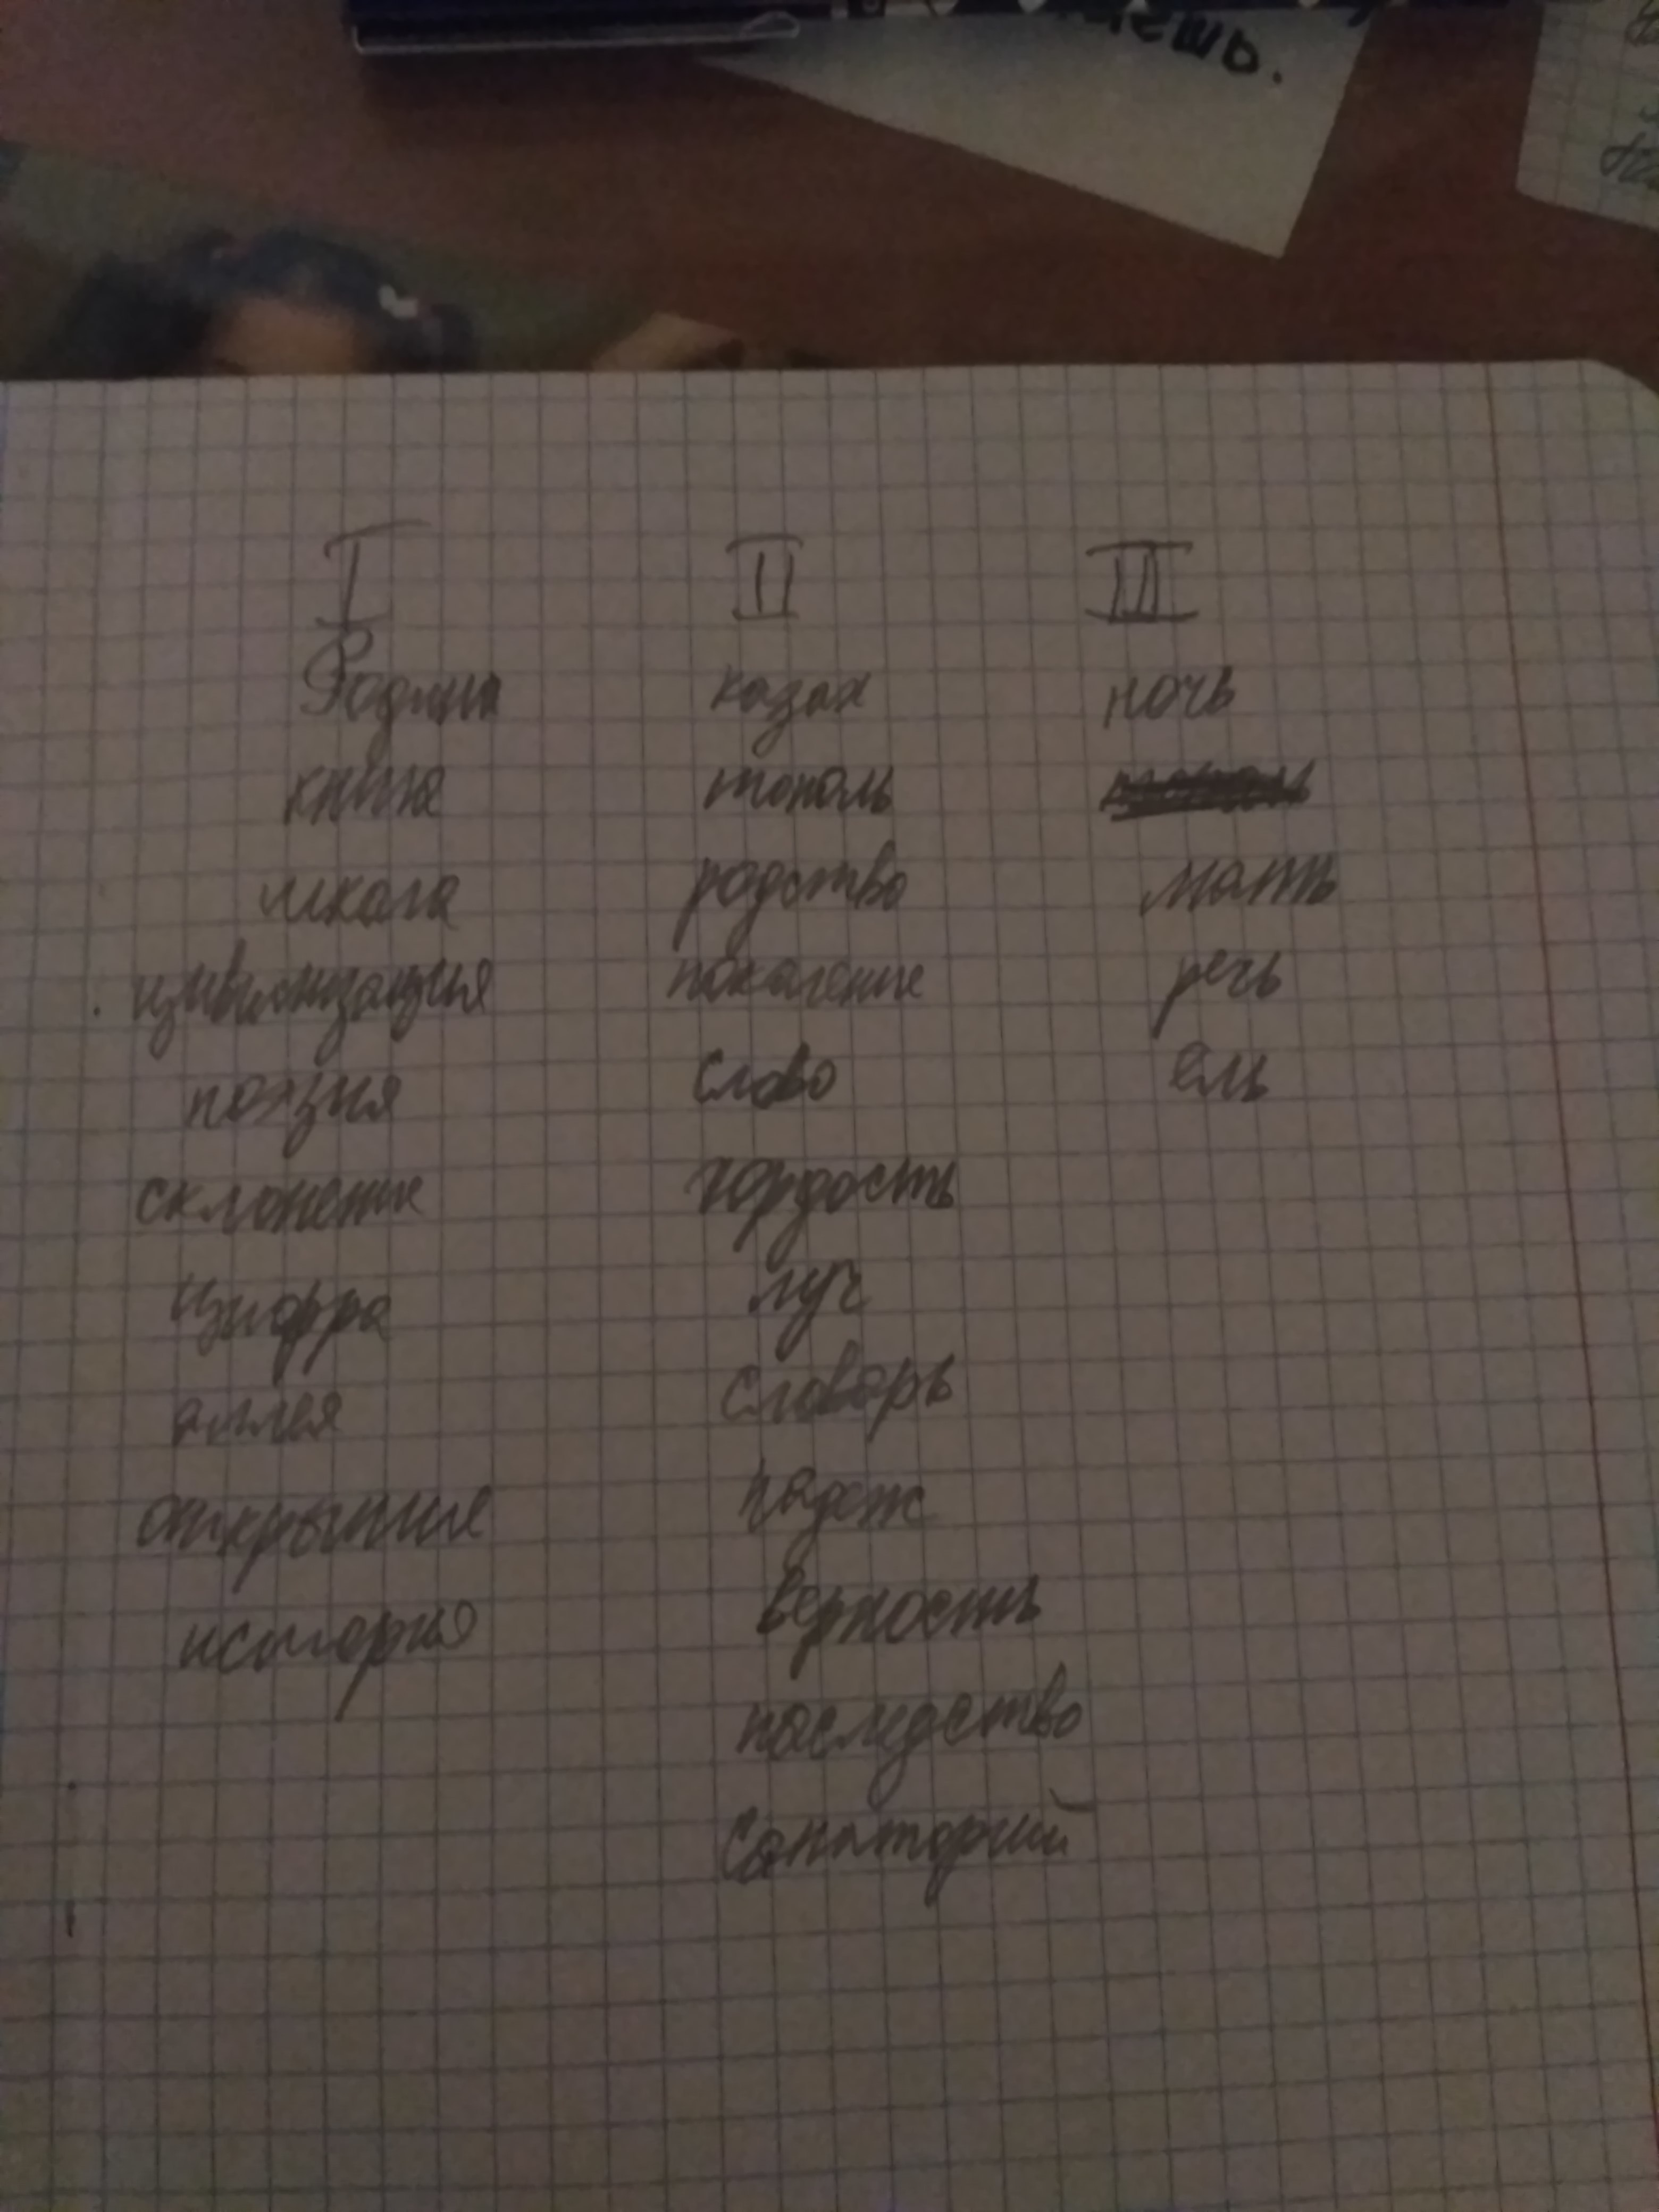 I II III
Родина казах ночь
книга тополь
школа родство мать
цивилизация поколение речь
поэзия слово ель
склонение гордость
цифра луч
аллея словарь
открытие падеж
история верность
последство
санаторий